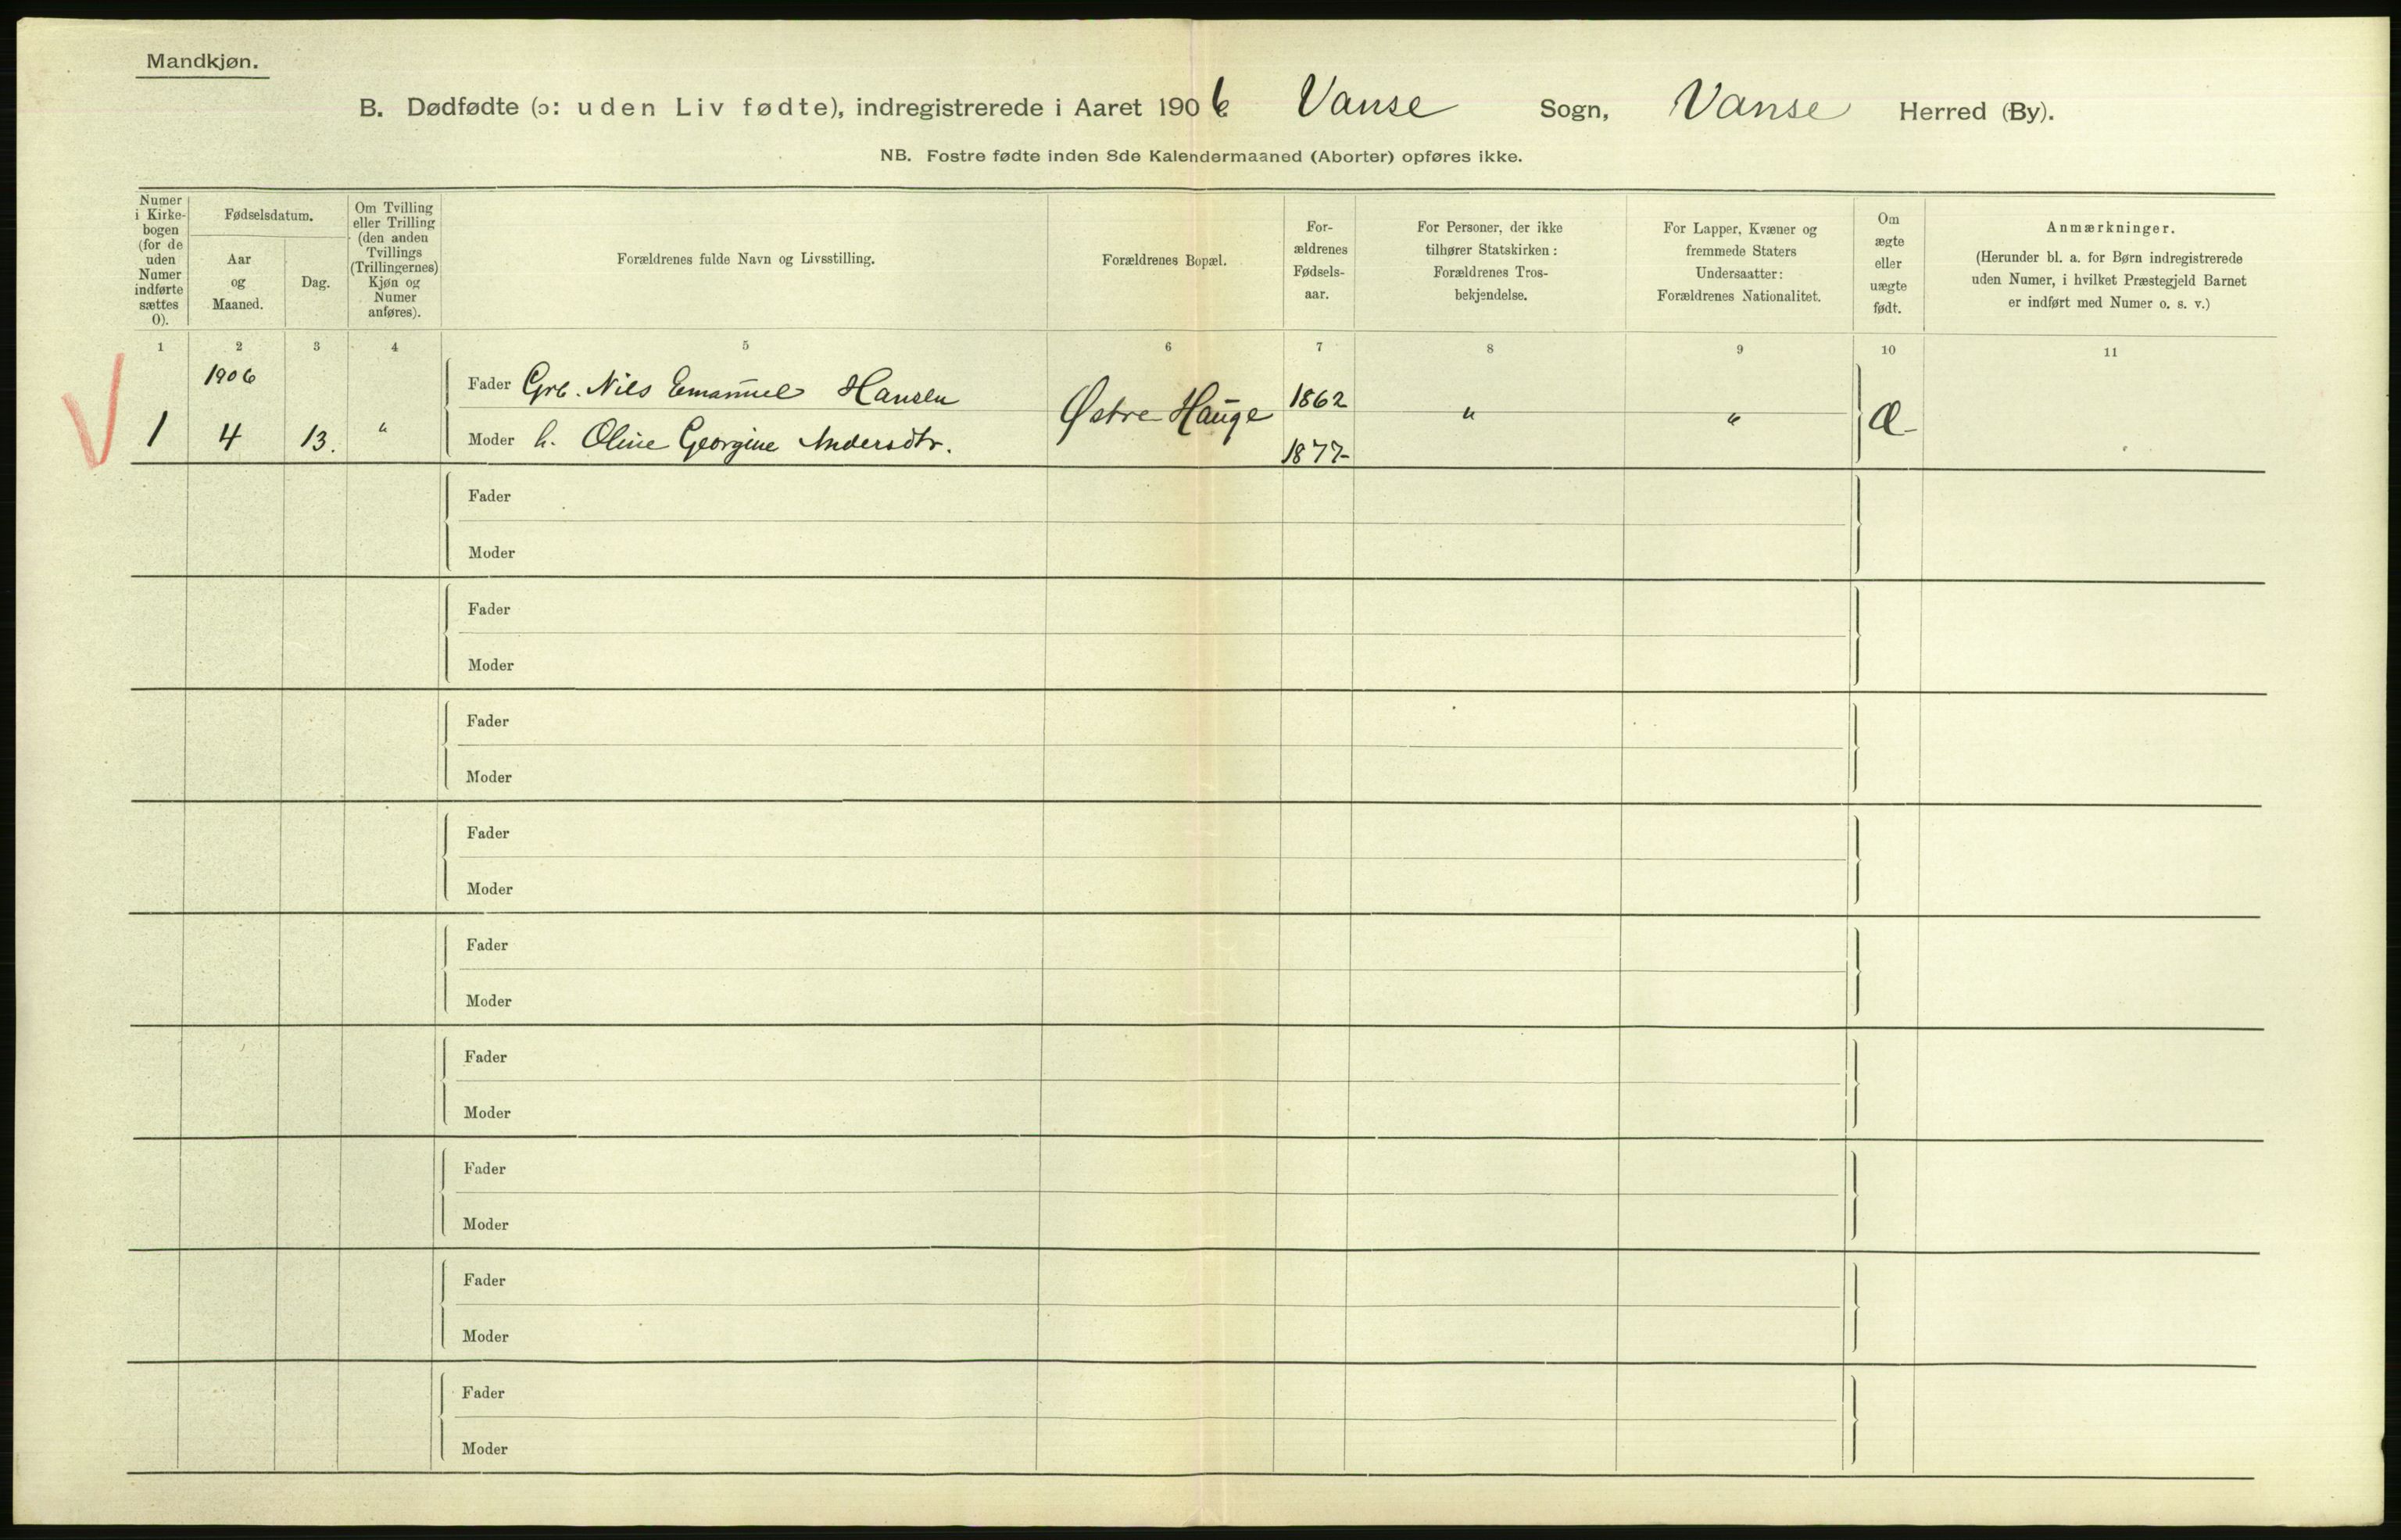 Mandkjøn.
B. Dødfødte (ɔ: uden Liv fødte), indregistrerede i Aaret 1906 Vanse Sogn, Vanse Herred (By).
NB. Fostre fødte inden 8de Kalendermaaned (Aborter) opføres ikke.
Numer
i Kirke-
bogen
(for de
uden
Numer
indførte
sættes
0).
Fødselsdatum.
Aar
og
Maaned.
Dag.
Om Tvilling
eller Trilling
(den anden
Tvillings
(Trillingernes)
Kjøn og
Numer
anføres).
Forældrenes fulde Navn og Livsstilling.
Forældrenes Bopæl.
For-
ældrenes
Fødsels-
aar.
For Personer, der ikke
tilhører Statskirken:
Forældrenes Tros-
bekjendelse.
For Lapper, Kvæner og
fremmede Staters
Undersaatter:
Forældrenes Nationalitet.
Om
ægte
eller
uægte
født.
Anmærkninger.
(Herunder bl. a. for Børn indregistrerede
uden Numer, i hvilket Præstegjeld Barnet
er indført med Numer o. s. v.)
1 2 3 4 5 6 7 8 9 10 11
1906
Fader Grb. Nils Emanuel Hansen 1862
1 4 13. " Østre Hauge " " Æ
Moder h. Oline Georgine Andersdtr. 1877
Fader
Moder
Fader
Moder
Fader
Moder
Fader
Moder
Fader
Moder
Fader
Moder
Fader
Moder
Fader
Moder
Fader
Moder